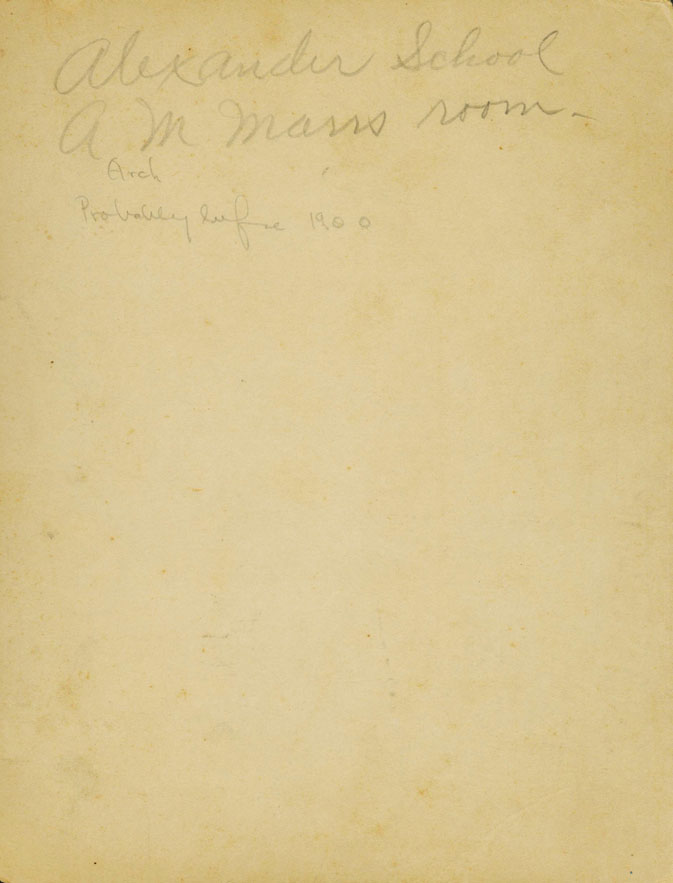 Alexander School
A M Marrs room -
Arch
Probably before 1900